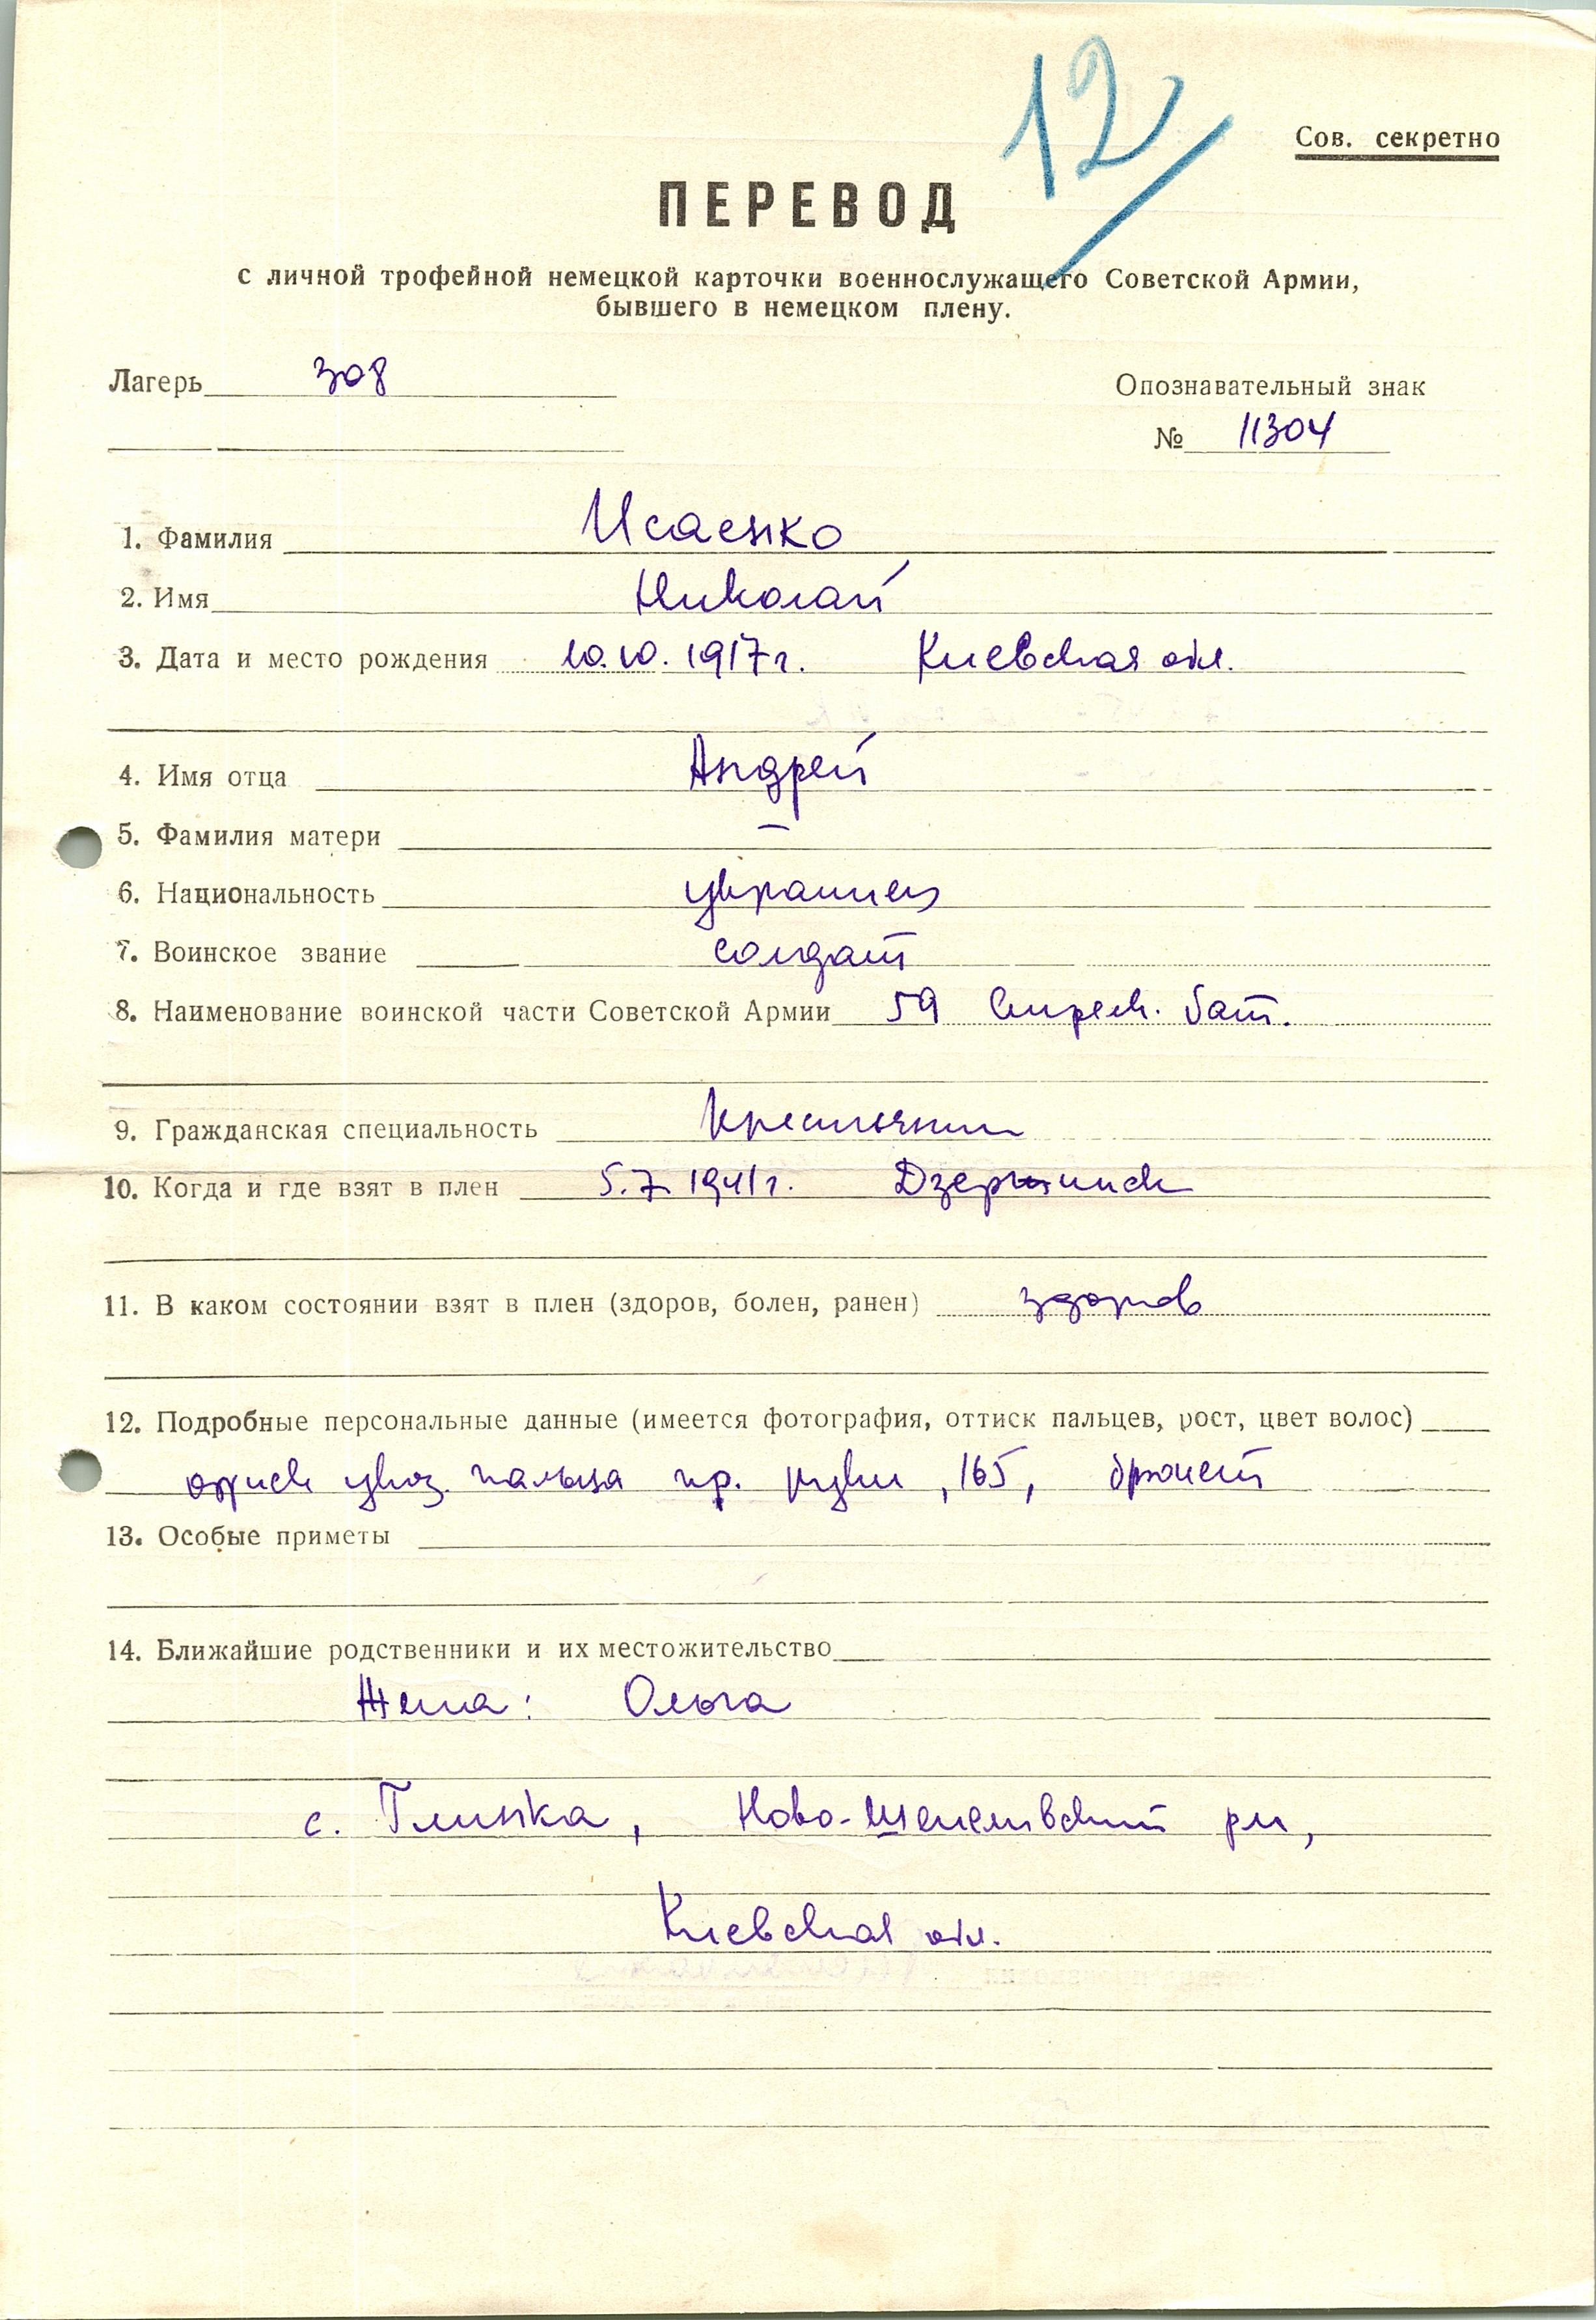 12/
Сов. секретно
ПЕРЕВОД
с личной трофейной немецкой карточки военнослужащего Советской Армии,
бывшего в немецком плену.
Лагерь 308
Опознавательный знак
№ 11304
1. Фамилия Исаенко
2. Имя Николай
3. Дата и место рождения 10.10.1917г. Киевская обл.
4. Имя отца Андрей
5. Фамилия матери —
6. Национальность украинец
7. Воинское звание солдат
8. Наименование воинской части Советской Армии 59 стрелк. бат.
9. Гражданская специальность крестьянин
10. Когда и где взят в плен 5.7.1941г. Дзержинск
11. В каком состоянии взят в плен (здоров, болен, ранен) здоров
12. Подробные персональные данные (имеется фотография, оттиск пальцев, рост, цвет волос)
оттиск указ. пальца пр. руки, 165, брюнет
13. Особые приметы
14. Ближайшие родственники и их местожительство
Жена: Ольга
с. Глинка, Ново-Шепелевский р-н,
Киевская обл.